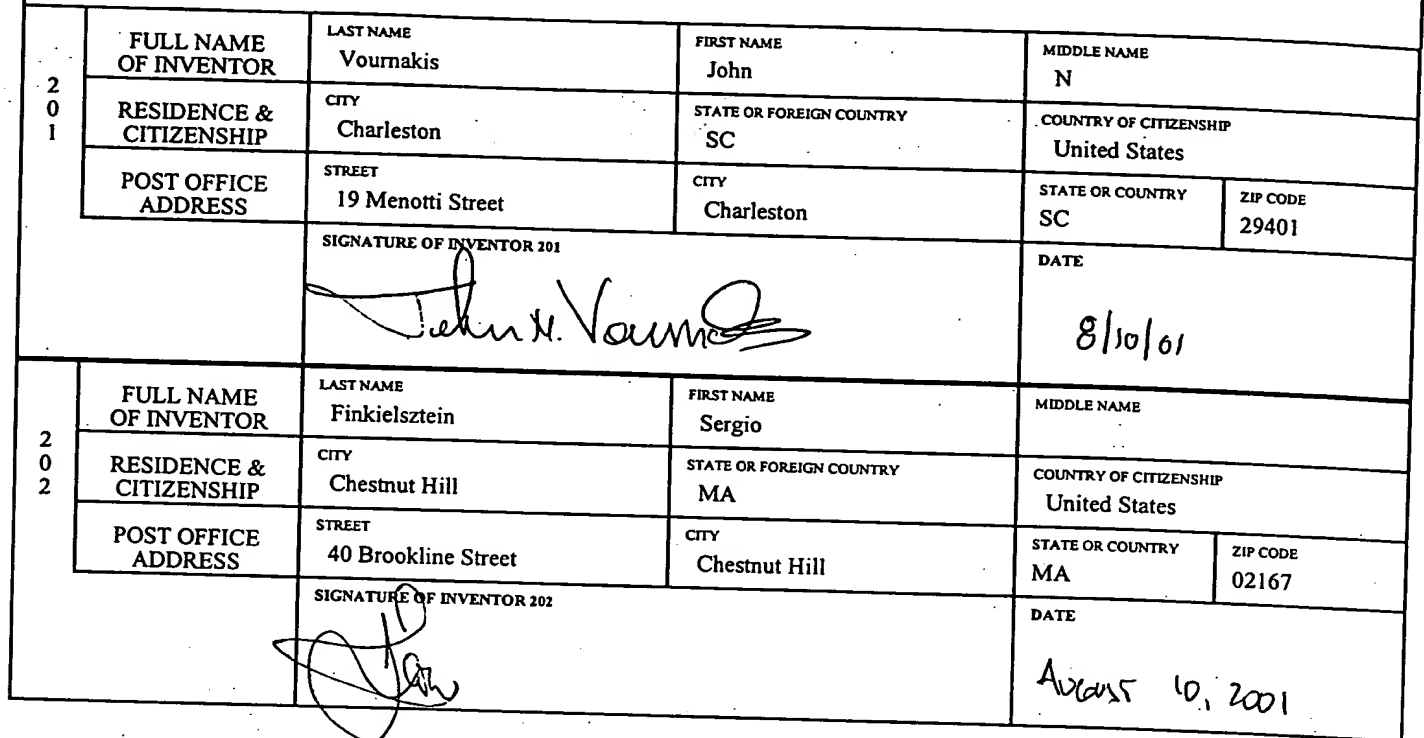 2
0
1
FULL NAME
OF INVENTOR
LAST NAME
Vournakis
FIRST NAME
John
MIDDLE NAME
N
RESIDENCE &
CITIZENSHIP
CITY
Charleston
STATE OR FOREIGN COUNTRY
SC
COUNTRY OF CITIZENSHIP
United States
POST OFFICE
ADDRESS
STREET
19 Menotti Street
CITY
Charleston
STATE OR COUNTRY
SC
ZIP CODE
29401
SIGNATURE OF INVENTOR 201
John N.
DATE
8/10/01
2
0
2
FULL NAME
OF INVENTOR
LAST NAME
Finkielsztein
FIRST NAME
Sergio
MIDDLE NAME
RESIDENCE &
CITIZENSHIP
CITY
Chestnut Hill
STATE OR FOREIGN COUNTRY
MA
COUNTRY OF CITIZENSHIP
United States
POST OFFICE
ADDRESS
STREET
40 Brookline Street
CITY
Chestnut Hill
STATE OR COUNTRY
MA
ZIP CODE
02167
SIGNATURE OF INVENTOR 202
DATE
August 10, 2001